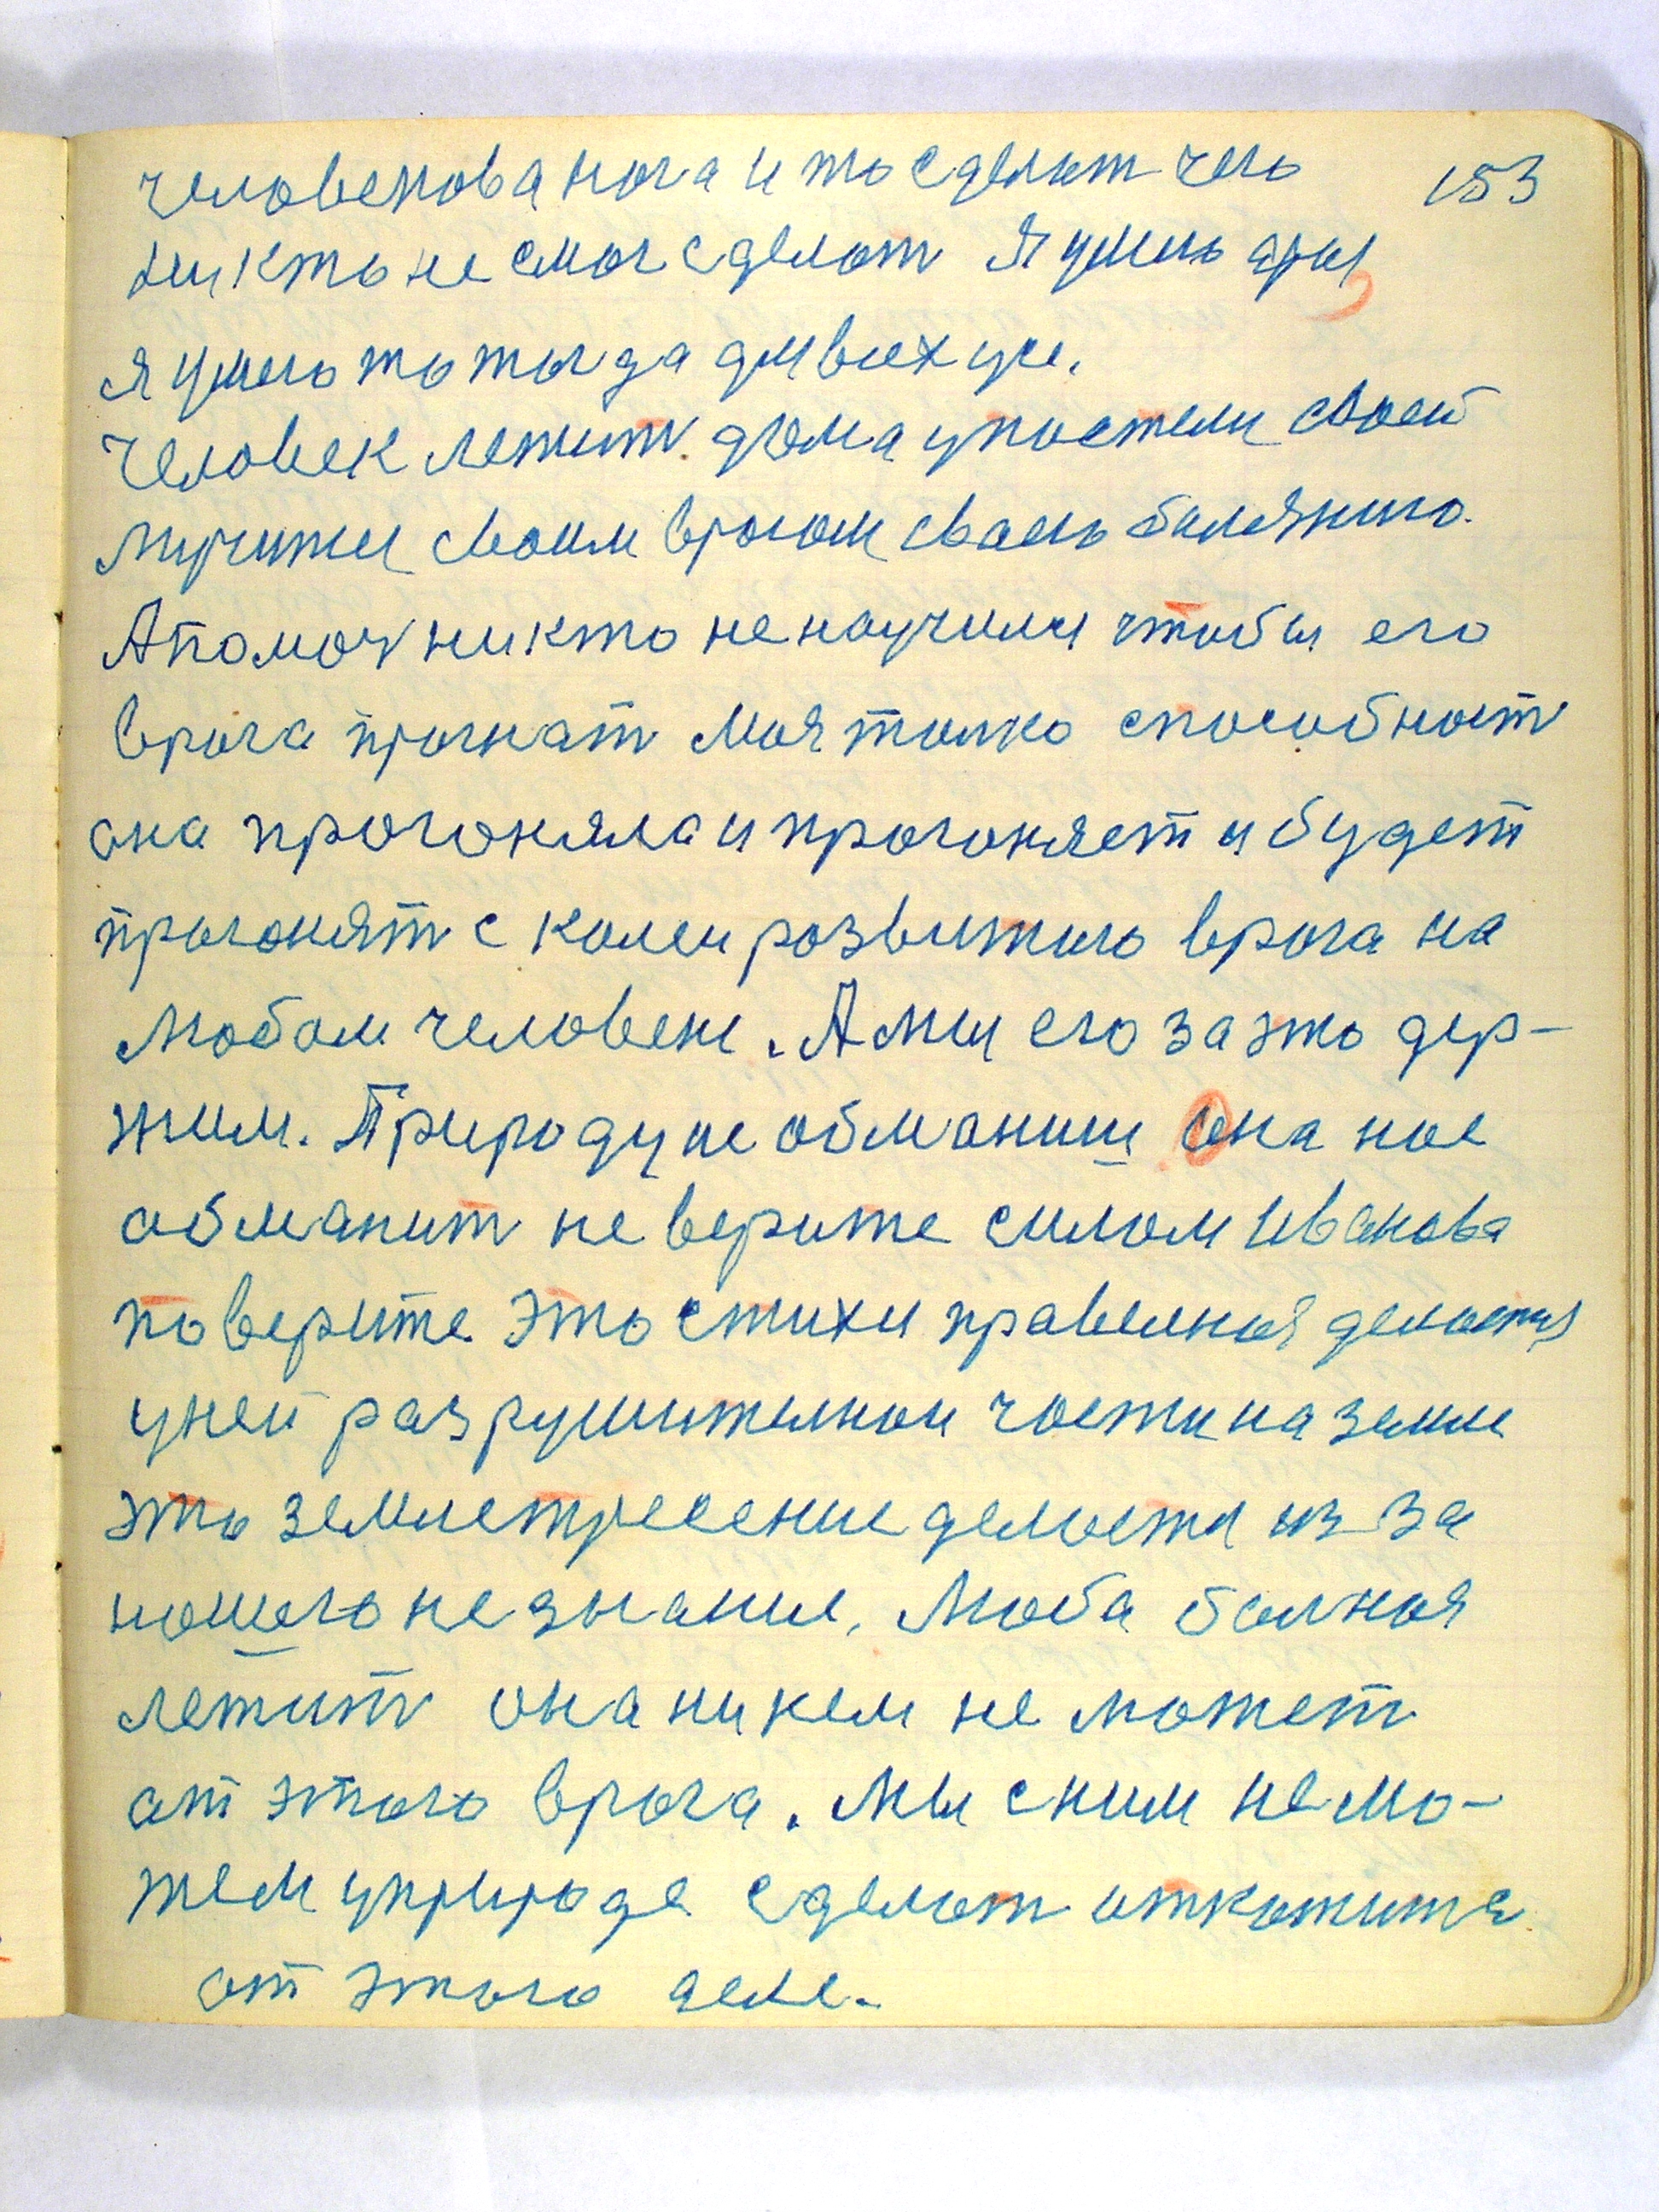 человекова нога и то сделат чего 153
никто не смог сделат Я умею
я умею то тогда для всех уже.
Человек лежит дома у постели своей
мучится своим врогом сваею
А помоч никто не научился чтобы его
врога прогнат Моя толко способност
она прогоняла и прогоняет и будет
прогонят с колеи розвитого врога на
любом человеке. А мы его за это дер-
жим. Природу не обманиш она нас
обманит не верите силам Иванова
поверите это стихи правелная
у ней разрушителнои части на земле
это землетресение делается из за
нашего не знание. Люба болная
лежит она никем не может
от этого врога. Мы с ним не мо-
жем у природе сделат
от этого